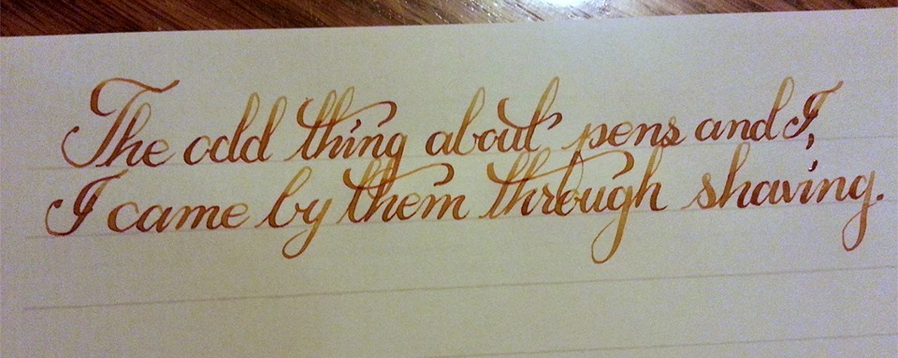 The odd thing about pens and I,
I came by them through shaving.